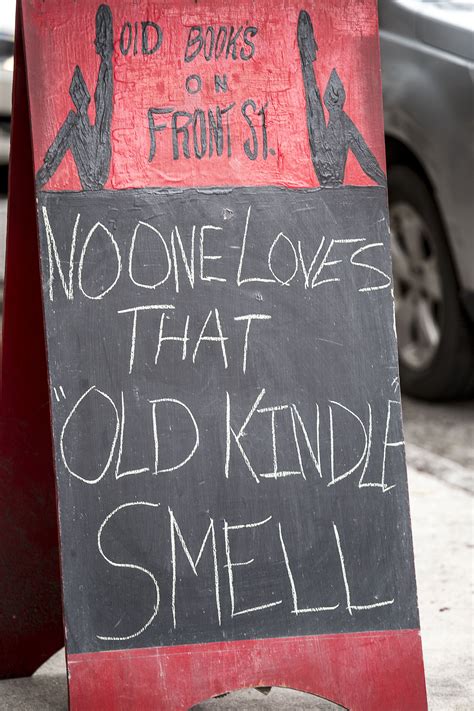 Old BOOKS
ON
FRONT ST.
NO ONE LOVES
THAT
"OLD KINDLE"
SMELL